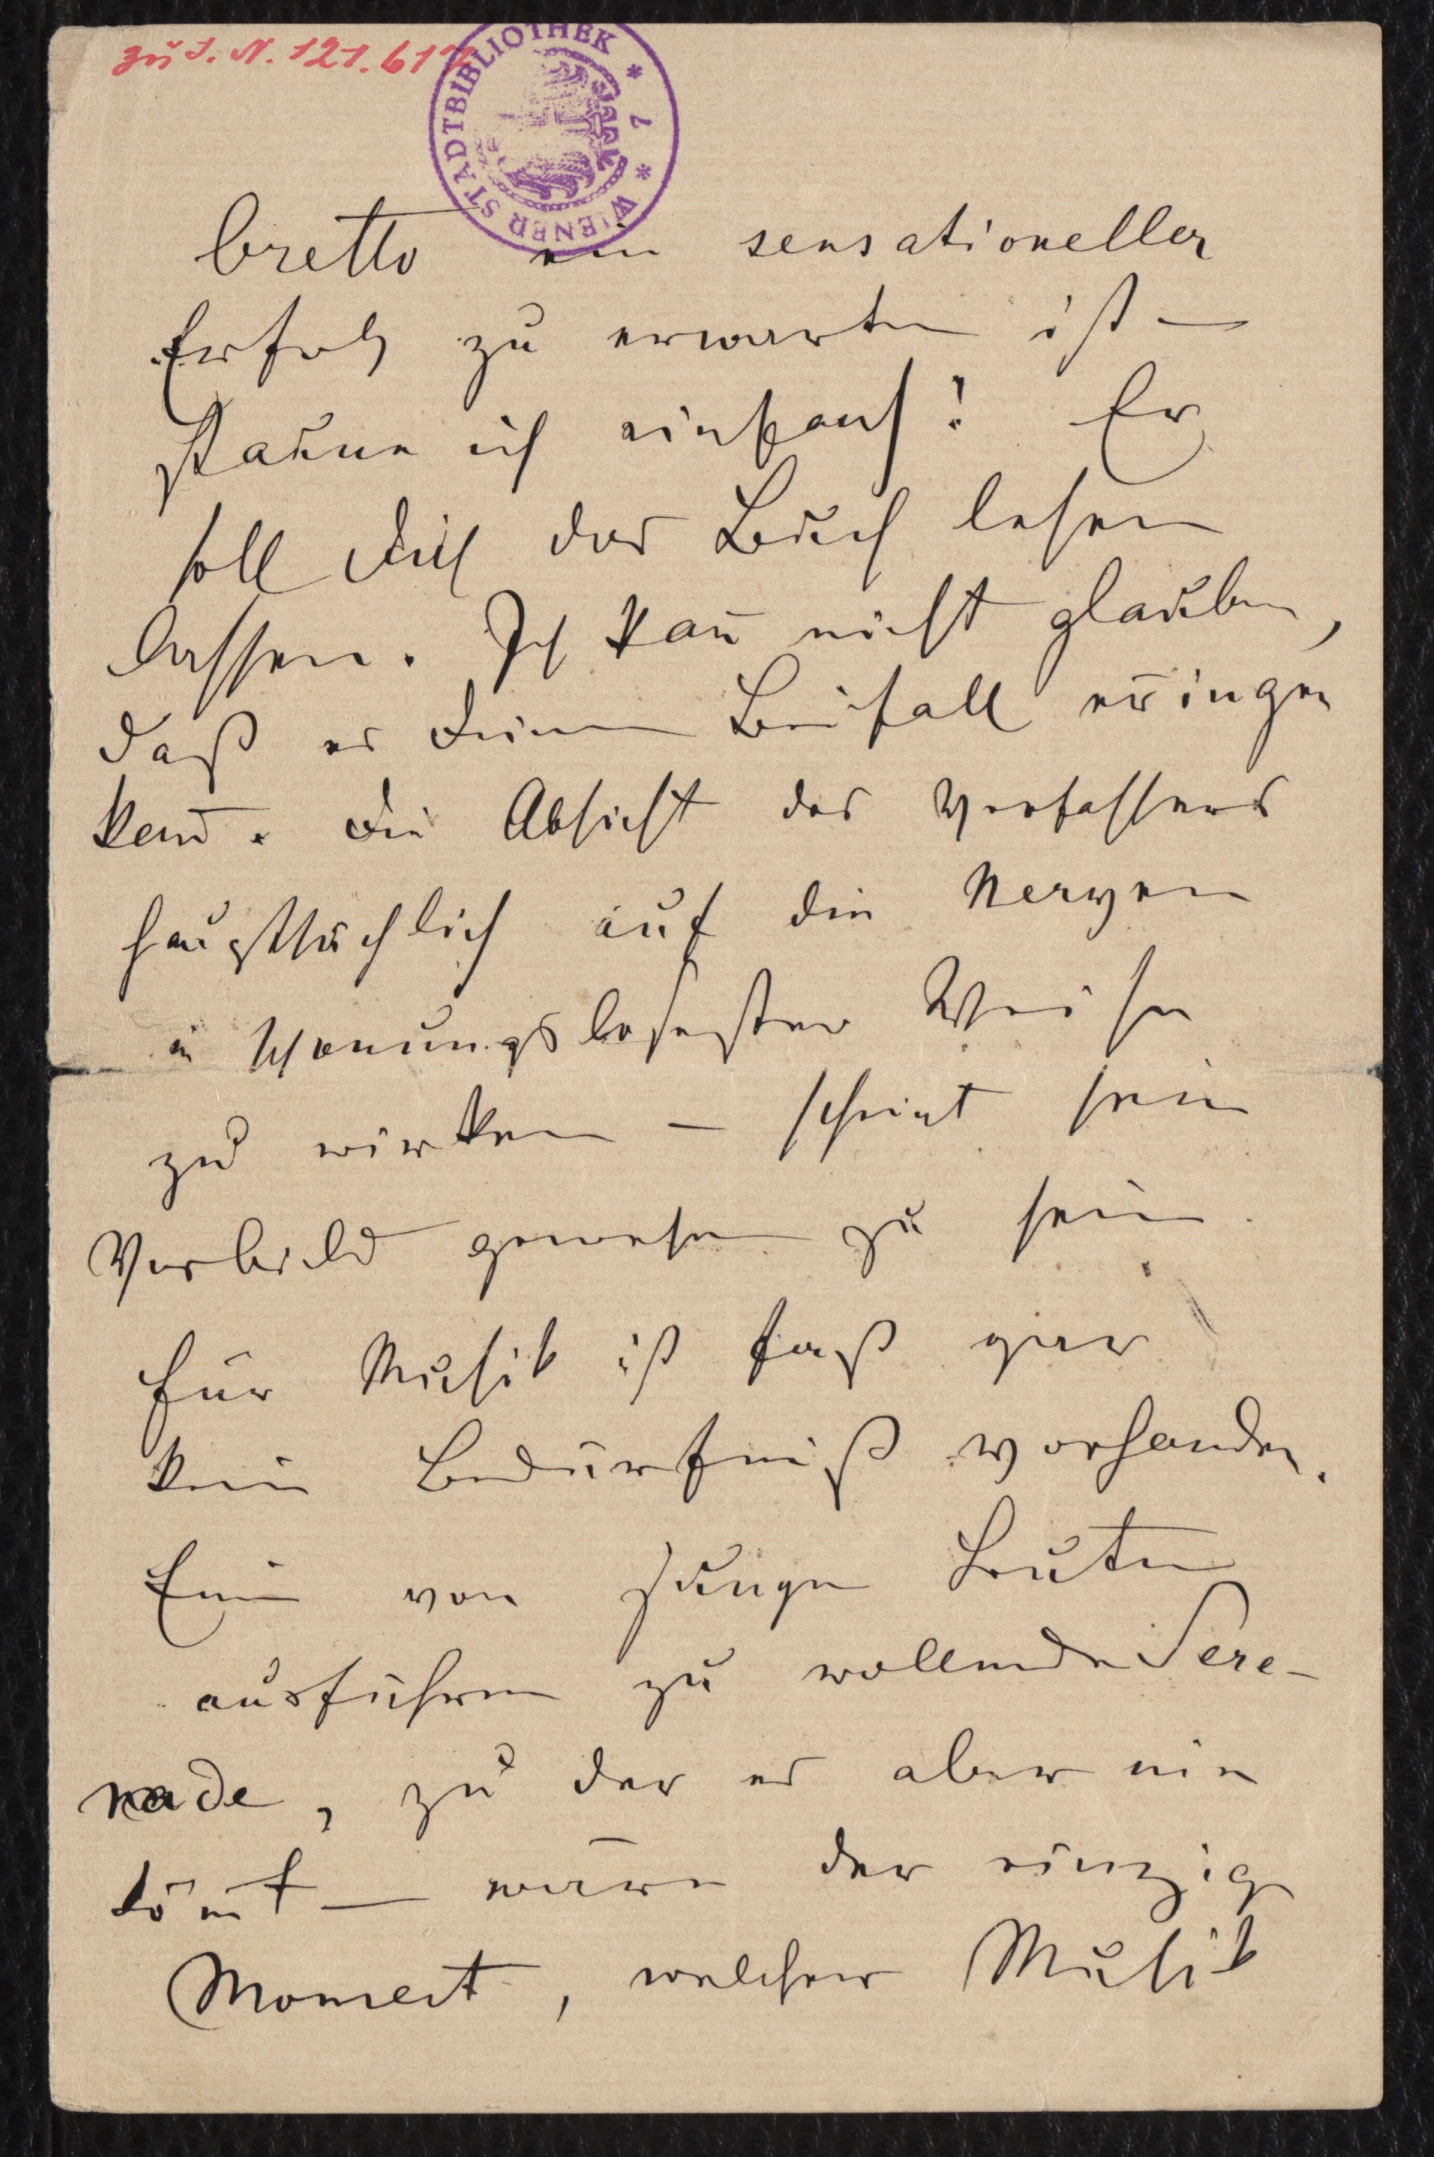 zu I. N. 121.617
WIENER STADTBIBLIOTHEK * 7 *
bretto ein sensationeller
Erfolg zu erwarten ist –
staune ich einfach! Er
soll Dich das Buch lesen
lassen. Ich kan̄ nicht glauben,
daß es Deinen Beifall er̄ingen
kan̄. Die Absicht des Verfassers
hauptsächlich auf die Nerven
in schonungslosester Weise
zu wirken – scheint sein
Vorbild gewesen zu sein.
Für Musik ist fast gar
kein Bedürfniß vorhanden.
Eine von jungen Leuten
ausführen zu wollende Sere-
nade, zu der es aber nie
kom̄t – wäre der einzige
Moment, welcher Musik